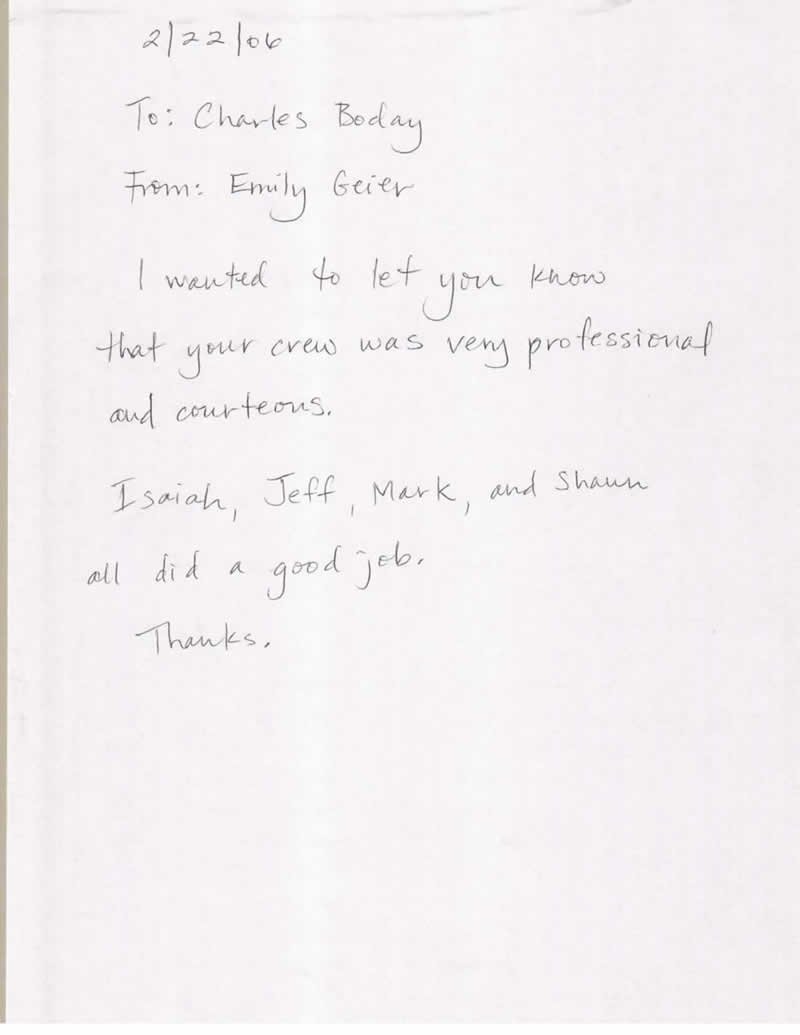 2/22/06
To: Charles Boday
From: Emily Geier
I wanted to let you know
that your crew was very professional
and courteous.
Isaiah, Jeff, Mark, and Shaun
all did a good job.
Thanks.